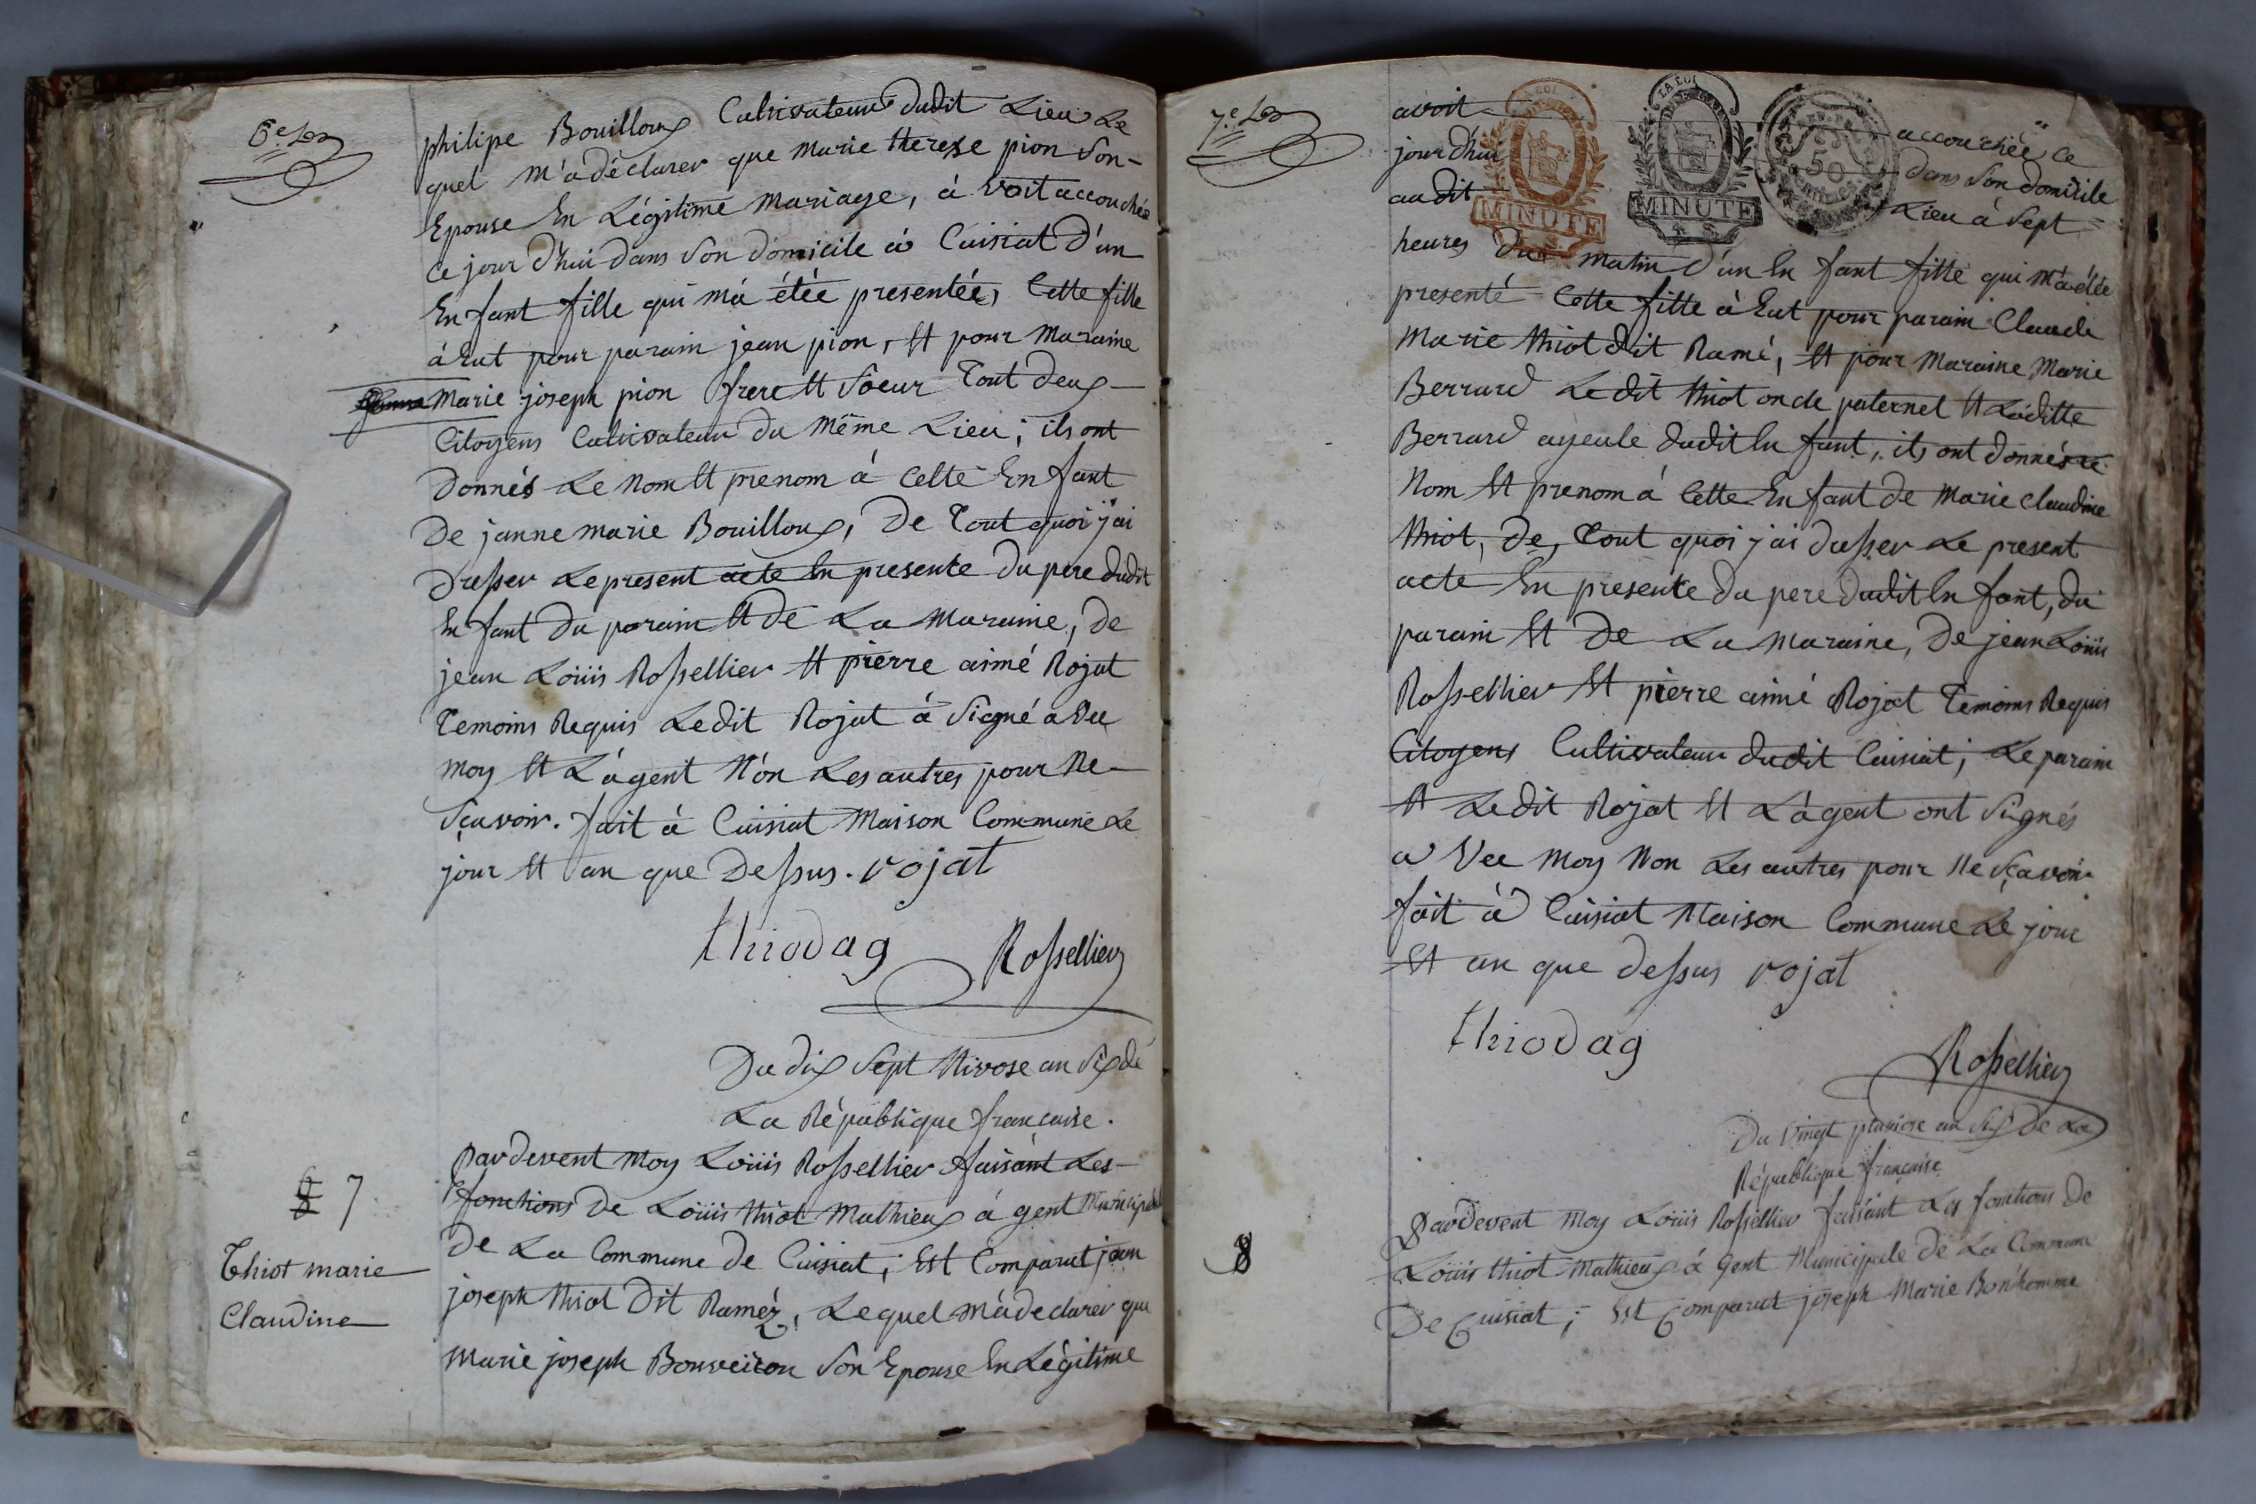 6.e
philipe Bouilloux Cultivateur dudit Lieu Le
quel m'a déclarer que marie therese pion Son-
Epouse En Légitime mariage, à voit accouchée
Ce jour d'hui dans Son domicile à Cuisiat d'un
En fant fille qui m'a étée presentée, Cette fille
à Eut pour parain jean pion, Et pour maraine
Marie joseph pion frere Et Soeur Tout deux-
Citoyens Cultivateur du même Lieu; ils ont
donnés Le nom Et prenom à Cette En fant
De janne marie Bouilloux, De Tout quoi j'ai
Dresser Le present acte En presente du pere dudit
En fant du parain Et de La maraine, de
jean Loüis Rossellier Et pierre aimé Rojat
Temoins Requis Ledit Rojat à Signé avec
moy Et L'àgent N'on Les autres pour Ne-
Sçavoir. fait à Cuisiat Maison Commune Le
jour Et an que Dessus. rojat
thiodag Rossellier
Du dix Sept Nivose an Six de
La République française.
7
Thiot marie
Claudine
Pardevent moy Loüis Rossellier faisant Les-
fonctions De Loüis thiot Mathieux à gent Municipal
De La Commune de Cuisiat; Est Comparut jean
joseph thiot Dit Ramez, Lequel m'à declarer que
Marie joseph Bonveiron Son Epouse En Légitime
7.e
LA LOI
MINUTE
LA LOI
MINUTE
50
avoit accouchée Ce
jour d'hui dans Son domicile
audit Lieu à Sept
heures du matin d'un En fant fille qui m'a étée
presenté Cette fille à Eut pour parain Claude
Marie thiot dit Ramé, Et pour Maraine Marie
Berrard Le dit thiot oncle paternel Et Laditte
Berrard ayeule dudit En fant, ils ont donnés Le
Nom Et prenom à Cette En fant de Marie Claudine
thiot, De, Tout quoi j'ai dresser Le present
acte En presente du pere dudit En fant, du
parain Et De La Maraine, De jean Loüis
Rossellier Et pierre aimé Rojat Temoins Requis
Citoyens Cultivateur dudit Cuisiat; Le parain
Et Ledit Rojat Et L'àgent ont Signés
avec moy Non Les autres pour Ne Sçavoir
fait à Cuisiat Maison Commune Le jour
Et an que dessus rojat
thiodag
Rossellier
Du Vingt pluviose an Six De La
République française
8
Pardevent Moy Loüis Rossellier faisant Les fonctions De
Loüis thiot Mathieux à Gent Municipale De La Commune
De Cuisiat; Est Comparut joseph Marie Bonhomme